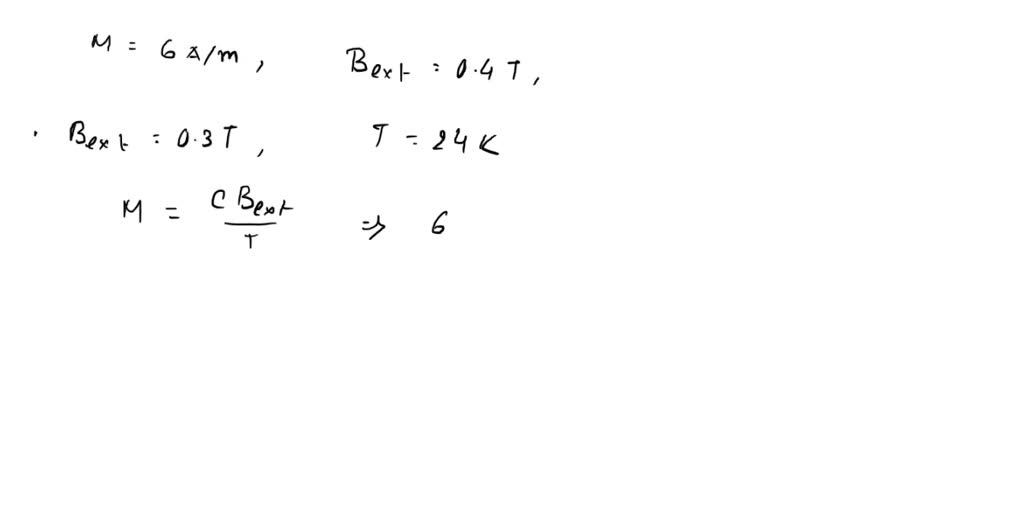 M = 6 A/m, Bext = 0.4 T,
. Bext = 0.3 T, T = 24 K
M = C Bext / T ⇒ 6